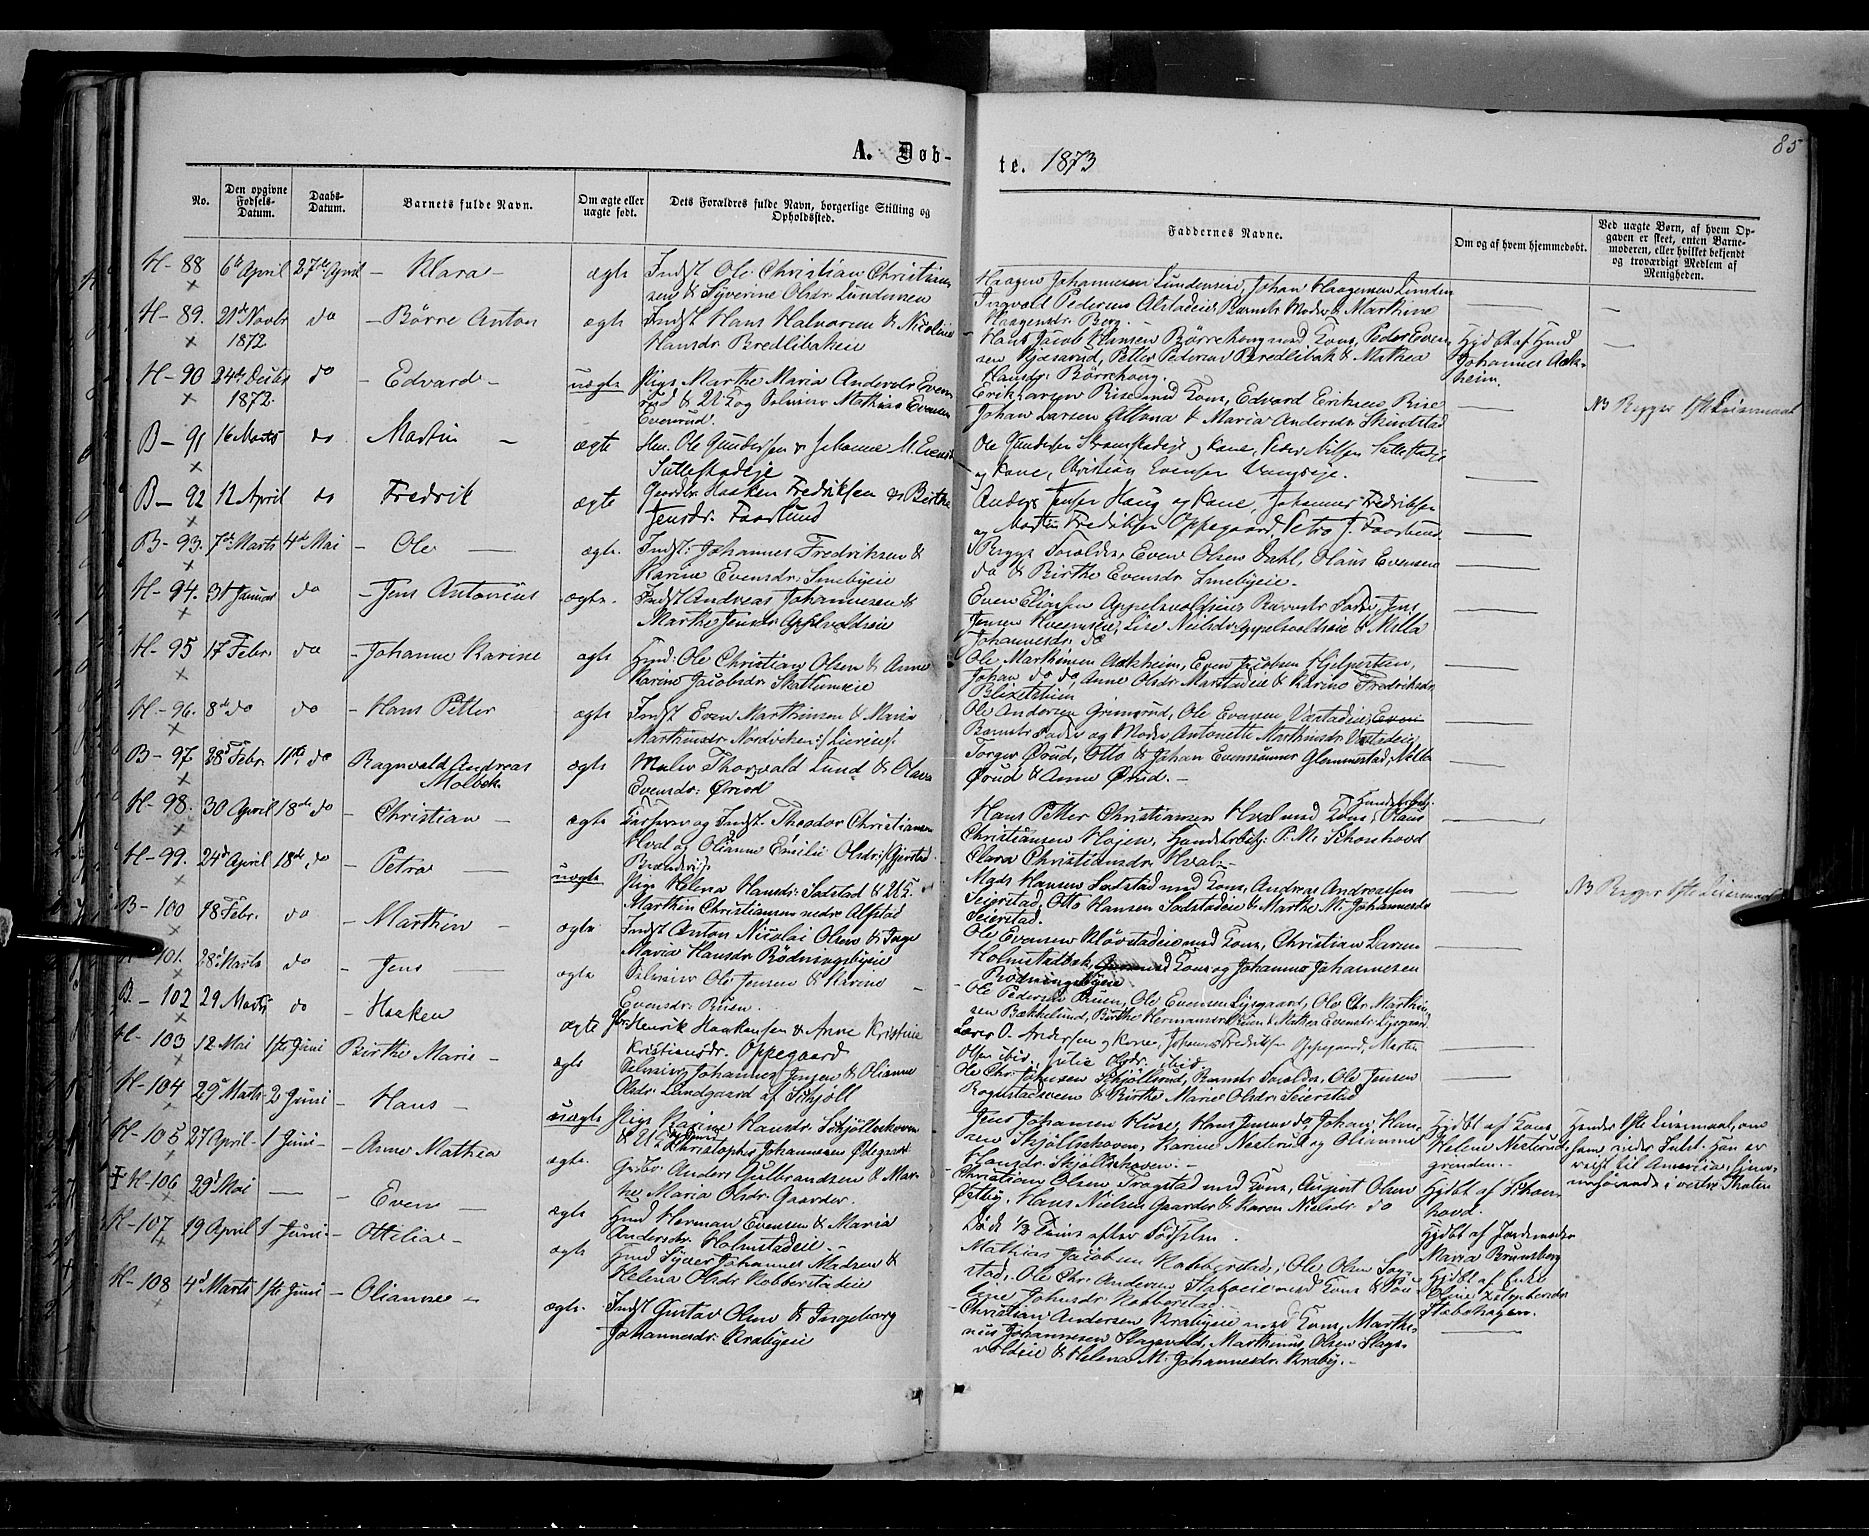 85
A. Døb-
te. 1873
No.
Den opgivne Fødsels-Datum.
Daabs-Datum.
Barnets fulde Navn.
Om ægte eller uægte født.
Dets Forældres fulde Navn, borgerlige Stilling og Opholdssted.
Faddernes Navne.
Om og af hvem hjemmedøbt.
Ved uægte Børn, af hvem Opgaven er skeet, enten Barnemoderen, eller hvilket bekjendt og troværdigt Medlem af Menigheden.
H- 88 6te April 27de April - Klara - ægte Indst Ole Christian Christian-
sen & Syverine Olsdr
Haagen Johannesen Lundenseie, Johan Haagensen Lunden
Ingvald Pedersen Alstadeie, Barnets Moder & Marthine
Haagensdr. Berg.
H- 89. 21de Novbr 1872 do - Børre Anton ægte Indst Hans Halvorsen & Nicoline
Hansdr Bredlibakeie
Hans Jacob Hansen Børrehoug med Kone, Peder Even-
sen, Petter Pedersen Bredlibak & Mathea
Hansdr. Børrehoug.
Hjdbt af Hmd
Johannes Aas-
heim.
H- 90 24de Decbr 1872. do - Edvard - uægte Pige Marthe Maria Andersdr Even-
rud & Mathias Evensen
Evenrud.
Erik Larsen Rise med Kone, Edvard Eriksen Rise
Johan Larsen & Maria Andersdr Skindstad
NB Begges 1ste Leiermaal
B- 91 16 Marts do Martin - ægte Hm. Ole Gundersen & Johanne M. Evensdr
Sullestadeie
Ole Gundersen & Kone, Peder Nilsen Sullestadeie
og Kone, Christian Evensen
B- 92 12 April do Fredrik ægte Haaken Fredriksen & Birthe
Jensdr. Faarlund
Anders Jensen Haug og Kone, Johannes Fredriksen
og Martin Fredriksen Oppegaard, Petra J. Faarlund
B- 93. 7de Marts 4de Mai - Ole - ægte. Indst: Johannes Fredriksen &
Karine Evensdr. Smebyeie
Begge Forældre, Even Olsen Dahl, Olaus Evensen
do & Birthe Evensdr. Smebyeie.
H- 94. 31 Januar do - Jens Antonius ægte. Indst Andreas Johannesen &
Marthe Jensdr Appelvoldseie
Even Eliassen Appelsvoldseie, Barnets Fader, Jens
Jensen, Lise Nielsdr Appelsvoldseie & Milla
Johannesdr. do
H- 95 17 Febr. do - Johanne Karine ægte Hmd: Ole Christian Olsen & Anne
Karine Jacobsdr. Skattumeie
Ole Marthinsen Aasheim, Even Jacobsen Hjelperstuen,
Johan do do, Anne Olsdr. Marstadeie & Karine Fredriksdr
H- 96. 8de do do - Hans Petter ægte Indst Even Marthinsen & Maria
Marthinsdr
Ole Andersen Grimsrud, Ole Evensen
Barnets Fader og Moder, Antonette Marthinsdr
B- 97 28 Febr. 11te do Ragnvald Andreas
Molbek. ægte Maler Thorvald Lund & Olava
Evensdr. Ørud
Torger Ørud, Otto & Johan Evenssønner Glemmestad, Milla
Ørud & Anne Ørud. -
H- 98. 30 April 18de do - Christian - ægte og Indst. Theodor Christiansen
Hval og Olianne Emilie Olsdr.
Hans Petter Christiansen Hval med Kone, Olaus
Christiansen Højen, Handelsbetj. P. M. Schonhovd
Clara Christiansdr. Hval. -
H- 99. 24de April 18de do - Petra - uægte Pige Helena Hansdr. Sadstad &
Marthin Christiansen nedre Alfstad
Mads Hansen Sadstad med Kone, Andreas Andreassen
Seierstad, Otto Hansen Sadstadeie & Marthe M. Johannesdr
Seierstad.
NB Begges 1ste Leiermaal
B- 100 18 Febr. do - Marthin - ægte Indst Anton Nicolai Olsen & Inge
Maria Hansdr. Rødningsbyeie
Ole Evensen Kløvstadeie med Kone, Christian Larsen
Holmstadbak, og Johanna Johannesen
Rødningsbyeie
101. 28 Marts do - Jens - ægte Selveier Ole Jensen & Karine
Evensdr. Ruen.
Ole Pedersen Ruen, Ole Evensen Lysgaard, Ole Chr. Marthin-
sen Bækkelund, Birthe Hermansdr Ruen & Mathea Evensdr. Lysgaard
B- 102 29 Marts do - Haaken ægte Henrik Haakensen & Anne Kristine
Kristiansdr. Oppegaard
Lærer O. Andersen og Kone, Johannes Fredriksen Oppegaard, Martin
Olsen ibid, Julie Olsdr. ibid.
H- 103 12 Mai 1ste Juni Birthe Marie - ægte Selveier Johannes Jensen & Olianne
Olsdr. Lundgaard af Skjøll
Ole Chr. Johansen Skjøllerud, Barnets Forældre, Ole Jensen
& Birthe Marie Olsdr. Seierstad
H- 104 29 Marts 2 Juni - Hans - uægte Pige Karine Hansdr. Skjøllshoven
& Christopher Johannesen Ødegaard
Jens Johansen Huse, Hans Jensen do Johan Han-
sen Skjøllshoven, Karine Næstrud og Olianne
Hansdr. Skjøllshoven. -
Hjdbt af Kone
Helene Næstrud-
grenden. -
Hendes 1ste Leiermaal, om
ham vides Intet. Han er
reist til Amerika, hjem-
mehørende i vestre Thoten
H- 105 27 April 1 Juni - Anne Mathea ægte. Anders Gulbrandsen & Mar-
the Maria Olsdr. Gaarder.
Christian Olsen Frogstad med Kone, August Olsen
Østby, Hans Nielsen Gaarder & Karen Nielsdr. do
Hjdbt af Schon-
hovd.
H- 106 29de Mai - Even - ægte Hmd Herman Evensen & Maria
Andersdr. Holmstadeie. -
Død 1/2 Time efter Fødselen.
Hjdbt af Jordemoder
Maria Brunsberg
H- 107 19 April 1 Juni - Ottilia - ægte Hmd Syver Johannes Madsen &
Helena Olsdr Kobberstadeie
Mathias Jacobsen Kobberstad, Ole Olsen Sog-
stad, Ole Chr. Andersen Staboeie med Kone & Pau-
line Johnsdr. Kobberstad.
Hjdbt af Enke
Stabohagen.
H- 108 4de Marts 1ste Juni - Olianne - ægte. Indst Gustav Olsen & Ingeborg
Johannesdr. Krabyeie
Christian Andersen Krabyeie med Kone, Marthi-
nus Johannesen Slagsvold, Marthinus Olsen Slags-
voldeie & Helena M. Johannesdr. Kraby. -